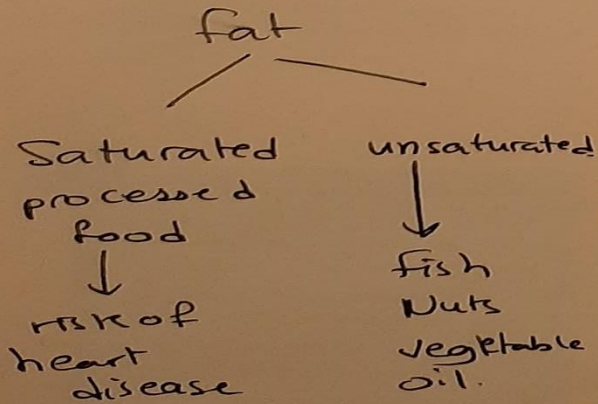 fat
Saturated
processed
food
risk of
heart
disease
unsaturated
fish
Nuts
vegetable
oil.